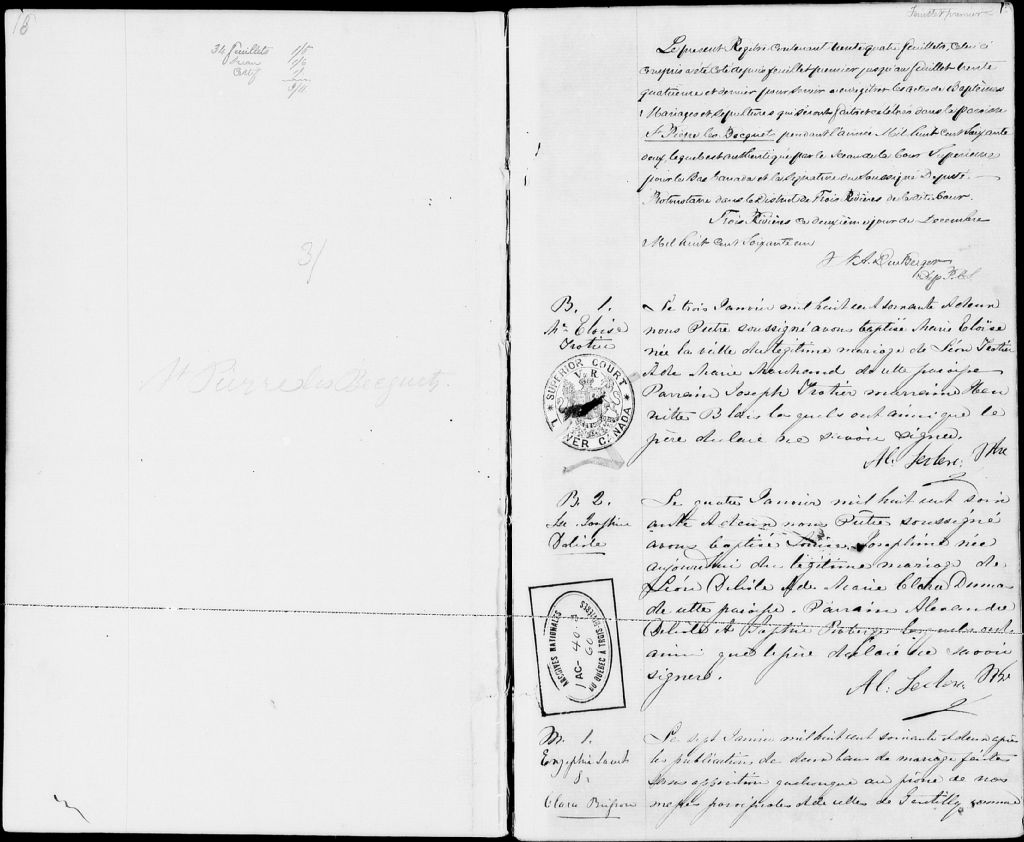 18
34 feuillets 1/5
Certif 1/
3/
St Pierre les Becquets.
Feuillet premier 1
Le présent Registre contenant trente quatre feuillets, celui ci
compris a été coté depuis feuillet premier jusqu'au feuillet trente
quatrieme et dernier pour servir a enregistrer les actes de Baptêmes
Mariages et sepultures qui seront faits et célébrés dans la paroisse
St Pierre les Becquets pendant l'année Mil huit cent Soixante
deux, lequel est authentiqué par le Sceau de la Cour Supérieure
pour le Bas Canada et la signature du Soussigné Député
Protonotaire dans le District de Trois Rivières de la dite Cour.
Trois Rivières ce deuxième jour de Decembre
Mil huit cent Soixante un
Dep P.C.S.
B. 1.
Me Eloïse
Trotier
Le trois Janvier mil huit cent soixante & deux
nous Prêtre soussigné avons baptisé Marie Eloïse
née la veille du légitime mariage de Léon Trotier
& de Marie Marchand de cette paroisse
Parrain Joseph Trotier marraine Hen
riette Blais lesquels ont ainsi que le
père déclaré ne savoir signer.
Al: Leclerc Ptre
SUPERIOR COURT
V R
LOWER CANADA
B. 2.
Joséphine
Délisle
Le quatre Janvier mil huit cent soix
ante & deux nous Prêtre soussigné
avons baptisé Joséphine née
aujourd'hui du légitime mariage de
Léon Délisle & de Marie Clara Dumas
de cette paroisse. Parrain Alexandre
Délisle & Sophie lesquels ont
ainsi que le père déclaré ne savoir
signer.
Al: Leclerc Ptre
ARCHIVES NATIONALES
1 AC- 40-3
60
DU QUÉBEC À TROIS-RIVIÈRES
M. 1.
&
Clara Brisson
Le sept Janvier mil huit cent soixante & deux après
la publication de deux bans de mariage faite
sans opposition quelconque au prône de nos
messes paroissiales & de celles de Gentilly, comme